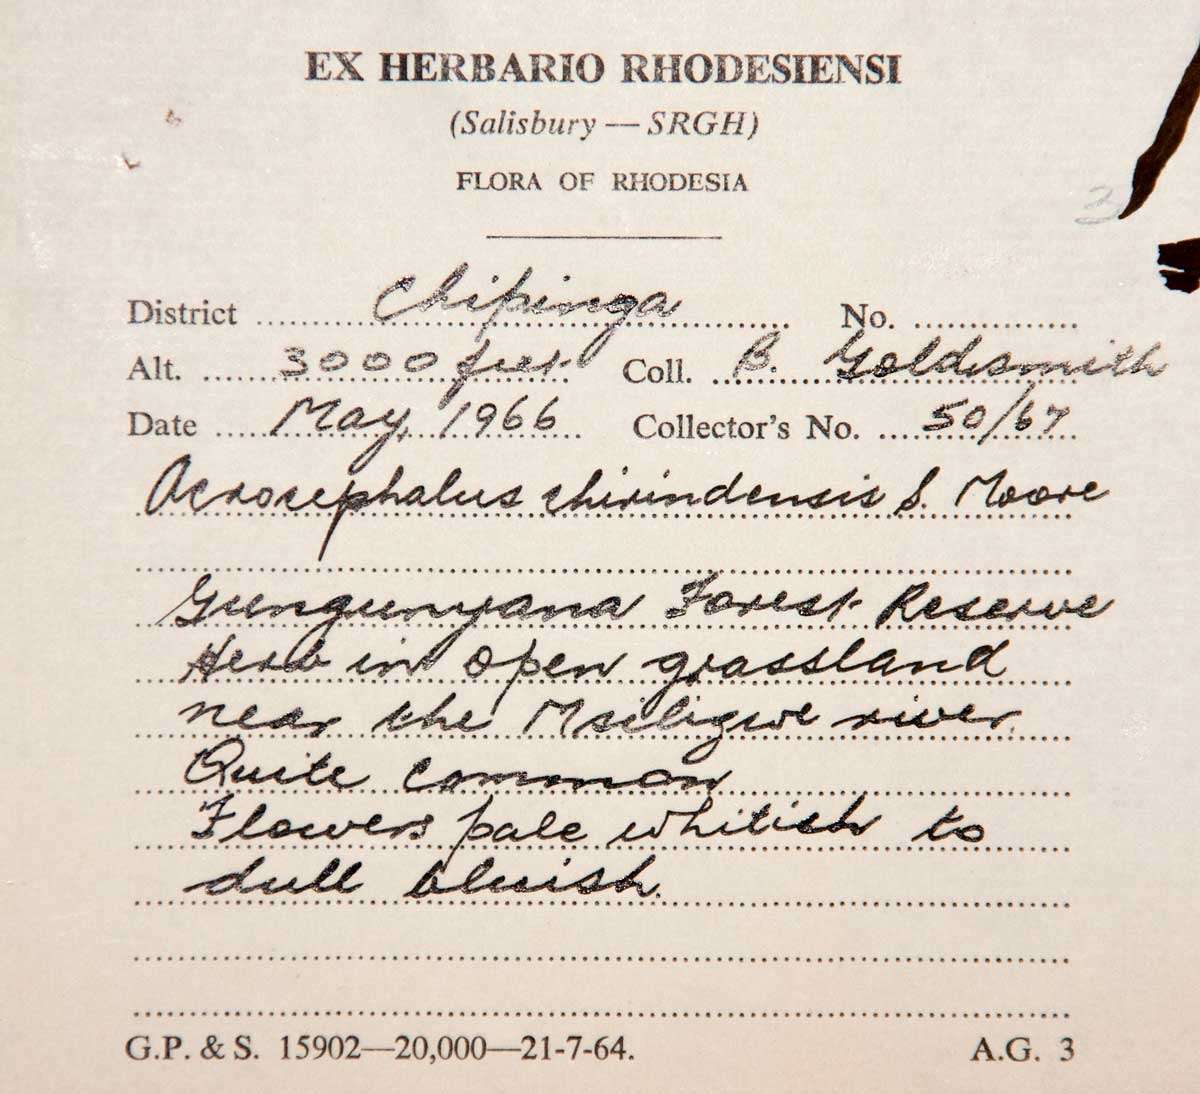 EX HERBARIO RHODESIENSI
(Salisbury — SRGH)
FLORA OF RHODESIA
2
District Chipinga No.
Alt. 3000 feet Coll. B. Goldsmith
Date May, 1966 Collector's No. 50/67
Acrocephalus chirindensis S. Moore
Gungunyana Forest Reserve
Herb in open grassland
near the Msiligwe river.
Quite common
Flowers pale whitish to
dull bluish.
G.P. & S. 15902—20,000—21-7-64. A.G. 3